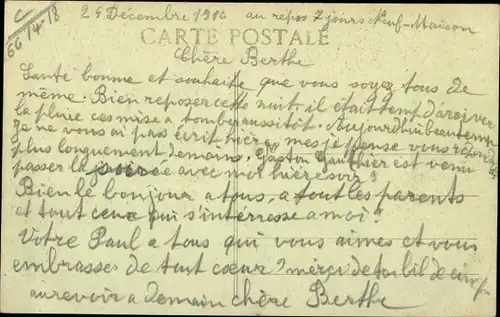 66 14-18
24 Décembre 1916 au repos 7 jours Neuf-Maison
CARTE POSTALE
Chère Berthe
Santé bonne et souhaite que vous soyez tous de
même. Bien reposer cette nuit. il etait temp d'ariver
la pluie ces mise a tomber aussitôt. Aujourd'hui beautemp
Je ne vous ai pas écrit hier, mes je pense vous
plus longuement demain. Gaston Gauthier est venu
passer la soirée avec moi hier soir?
Bien le bonjour a tous, a tout les parents
et tout ceux qui s'intérresse a moi?
Votre Paul a tous qui vous aimes et vous
embrasser de tout cœur? merci de ton bil de
au revoir a demain chère Berthe